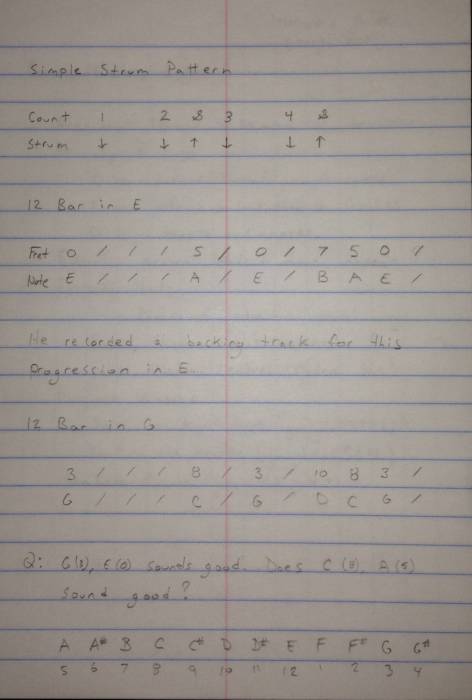 Simple Strum Pattern
Count 1 2 & 3 4 &
Strum ↓ ↓ ↑ ↓ ↓ ↑
12 Bar in E
Fret 0 / / / 5 / 0 / 7 5 0 /
Note E / / / A / E / B A E /
He recorded a backing track for this
progression in E.
12 Bar in G
3 / / / 8 / 3 / 10 8 3 /
G / / / C / G / D C G /
Q: G(3), E(0) sounds good. Does C (8), A(5)
sound good?
A A# B C C# D D# E F F# G G#
5 6 7 8 9 10 11 12 1 2 3 4